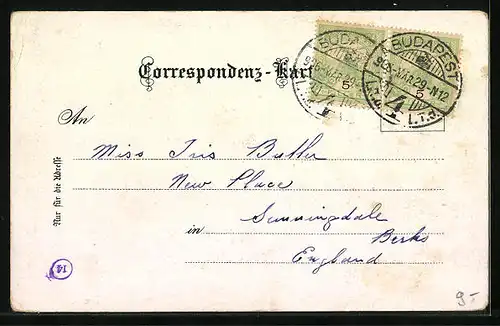 Correspondenz-Kart
BUDAPEST
BUDAPEST
906 MÁR 29-N12
5
5
4
4
I.T.J.
An
Miss Iris Butler
New Place
Sunningdale
in
Berks
England
Nur für die Adresse
14
9-